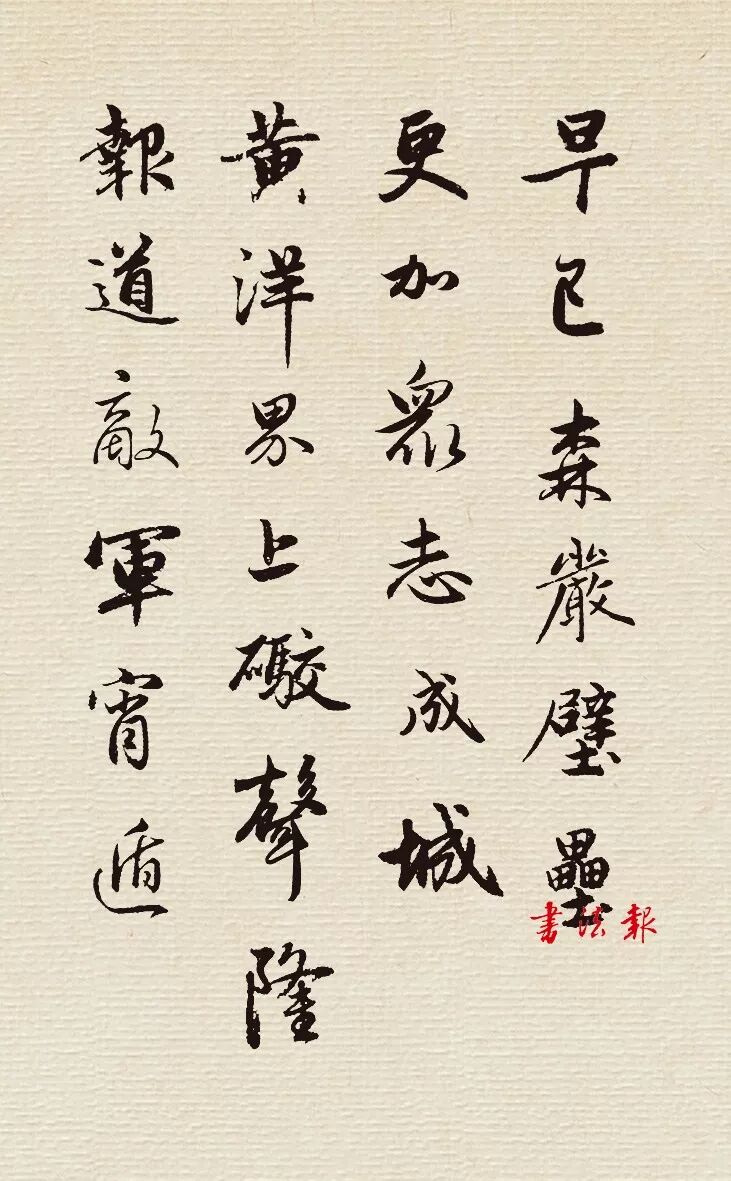 早已森嚴壁壘
更加眾志成城
黃洋界上礮聲隆
報道敵軍宵遁
書法報